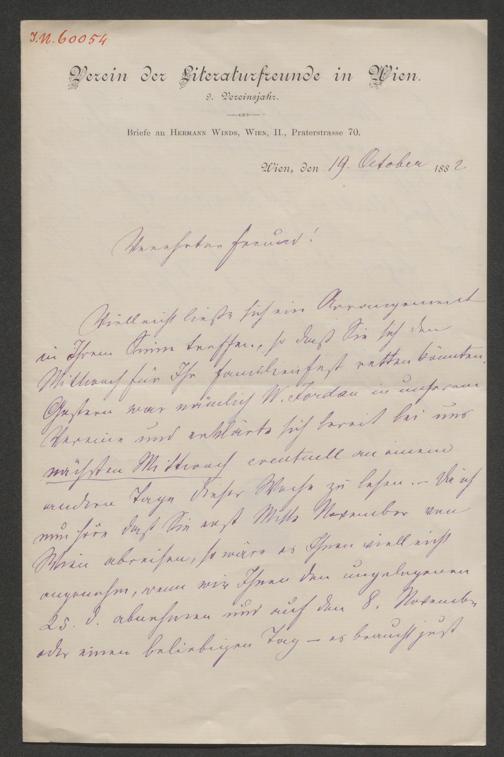 J.N. 60054
Verein der Literaturfreunde in Wien.
9. Vereinsjahr.
Briefe an HERMANN WINDS, WIEN, II., Praterstrasse 70.
Wien, den 19. October 1882
Verehrter Freund!
Vielleicht ließe sich ein Arrangement
in Ihrem Sinne treffen, so daß Sie sich den
Mittwoch für Ihr Familienfest retten könnten.
Gestern war nämlich W. Jordan in unserem
Vereine und erklärte sich bereit bei uns
nächsten Mittwoch eventuell an einem
andern Tage dieser Woche zu lesen. – Da ich
nun höre daß Sie erst Mitte November von
Wien abreisen, so wäre es Ihnen vielleicht
angenehm, wenn wir Ihnen den ungelegenen
25. d. abnehmen und auf den 8. November
oder einen beliebigen Tag – es braucht just